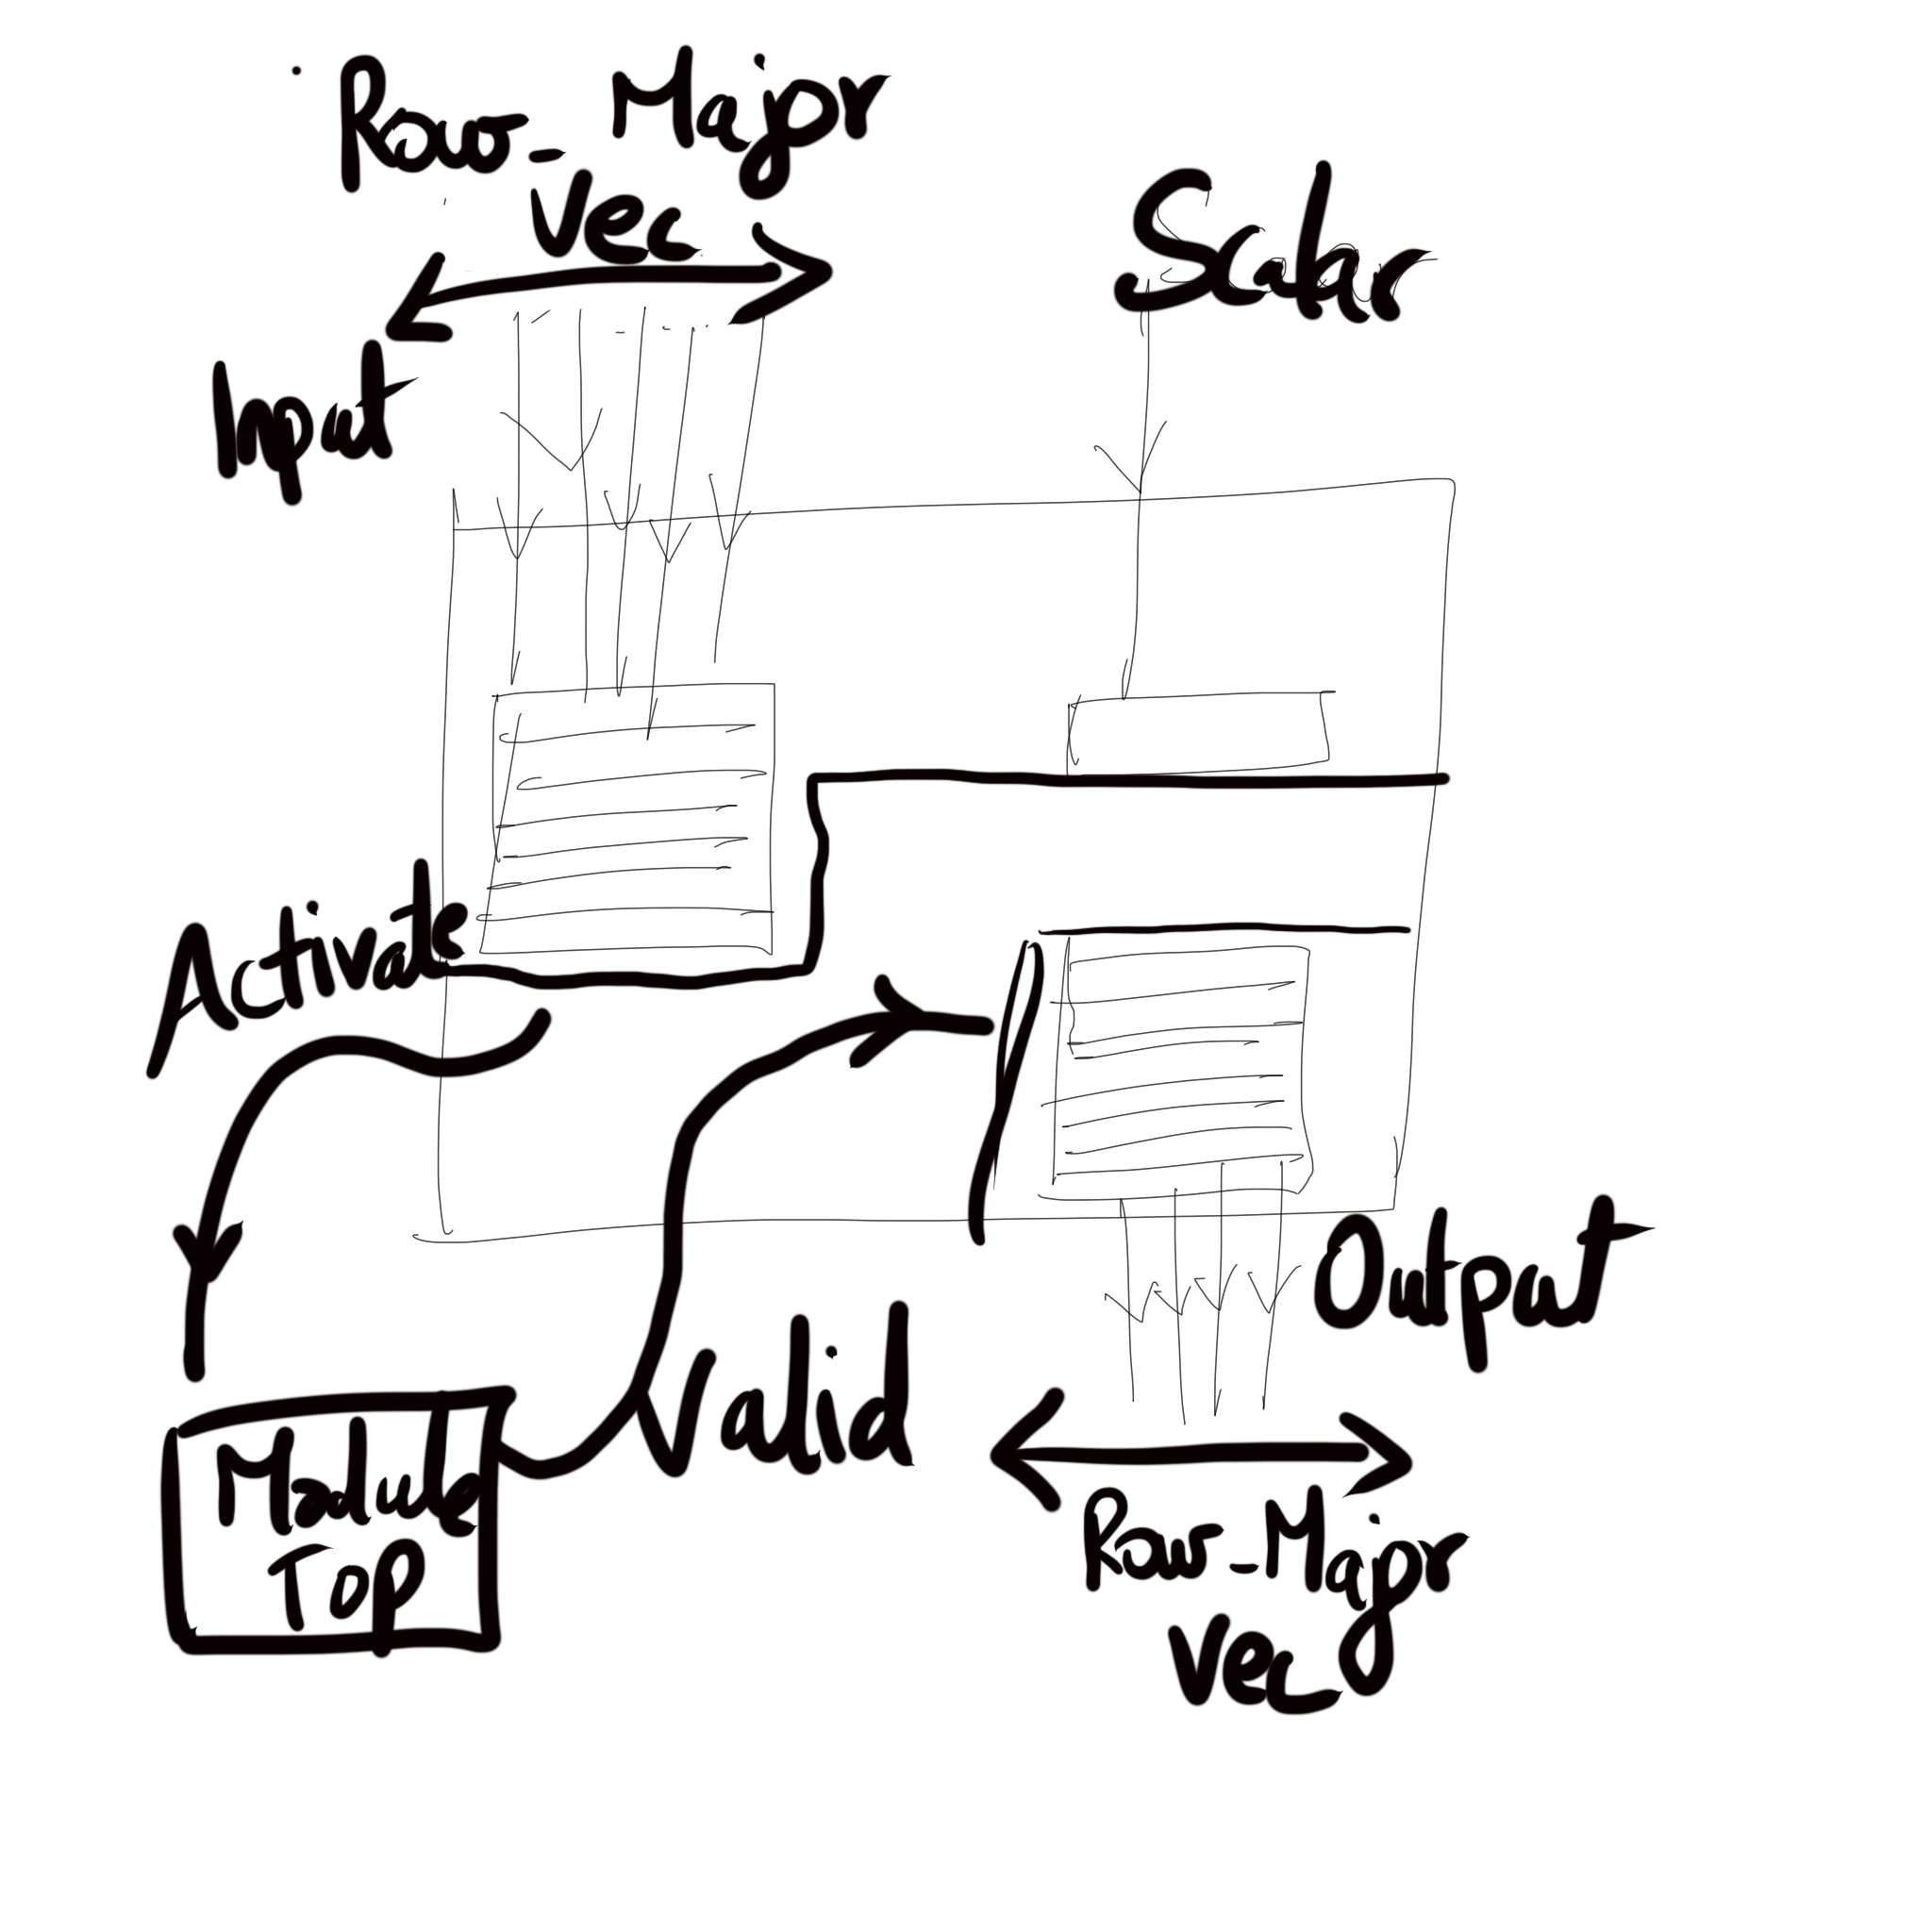 Row-Major
Vec
Scalar
Input
Activate
Output
Valid
Module
Top
Row-Major
Vec